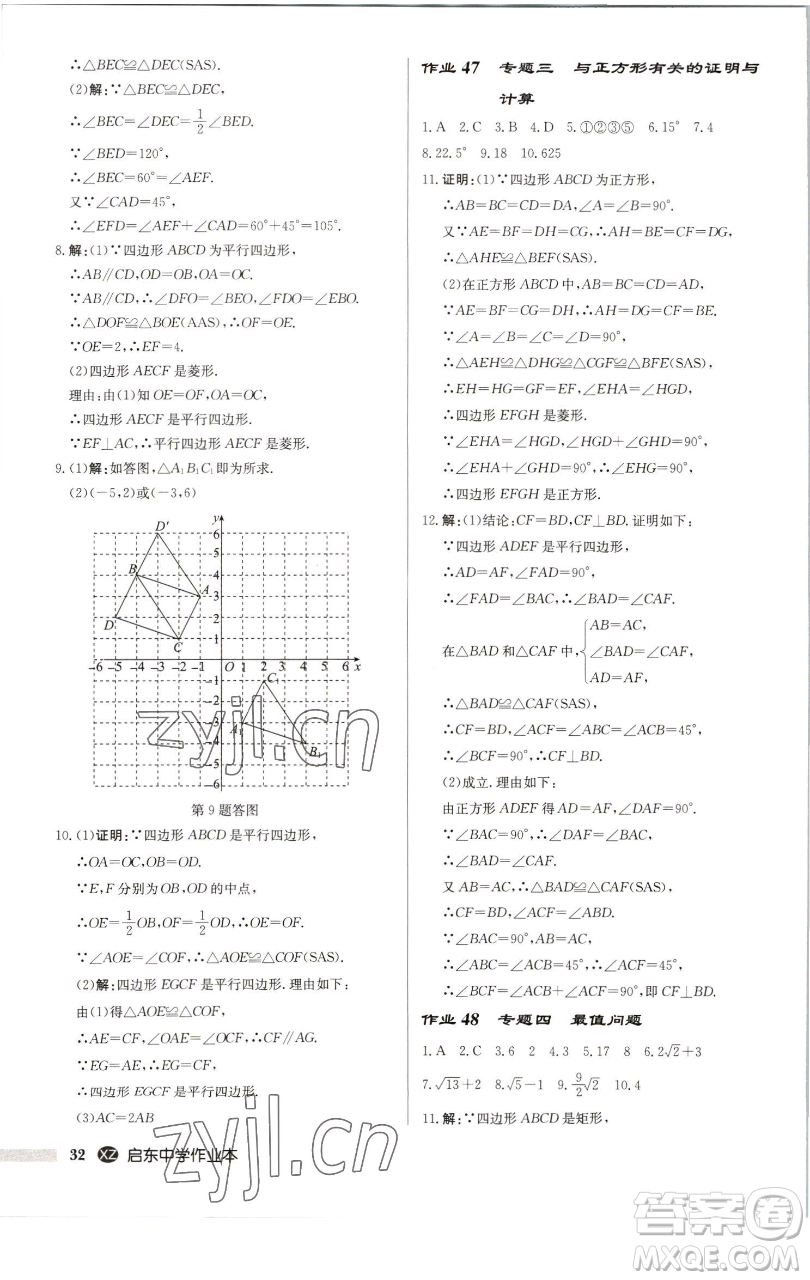 ∴△BEC≌△DEC(SAS).
(2)解:∵△BEC≌△DEC,
∴∠BEC=∠DEC=1/2∠BED.
∵∠BED=120°,
∴∠BEC=60°=∠AEF.
又∵∠CAD=45°,
∴∠EFD=∠AEF+∠CAD=60°+45°=105°.
8.解:(1)∵四边形ABCD为平行四边形,
∴AB∥CD,OD=OB,OA=OC.
∵AB∥CD,∴∠DFO=∠BEO,∠FDO=∠EBO.
∴△DOF≌△BOE(AAS),∴OF=OE.
∵OE=2,∴EF=4.
(2)四边形AECF是菱形.
理由:由(1)知OE=OF,OA=OC,
∴四边形AECF是平行四边形.
∵EF⊥AC,∴平行四边形AECF是菱形.
9.(1)解:如答图,△A₁B₁C₁即为所求.
(2)(-5,2)或(-3,6)
D′ y
6
5
B 4
A 3
D 2
C 1
-6 -5 -4 -3 -2 -1 O 1 2 3 4 5 6 x
-1 C₁
-2
-3 A₁
-4 B₁
-5
-6
第9题答图
10.(1)证明:∵四边形ABCD是平行四边形,
∴OA=OC,OB=OD.
∵E,F分别为OB,OD的中点,
∴OE=1/2OB,OF=1/2OD,∴OE=OF.
∵∠AOE=∠COF,∴△AOE≌△COF(SAS).
(2)解:四边形EGCF是平行四边形.理由如下:
由(1)得△AOE≌△COF,
∴AE=CF,∠OAE=∠OCF,∴CF∥AG.
∵EG=AE,∴EG=CF.
∴四边形EGCF是平行四边形.
(3)AC=2AB
32 XZ 启东中学作业本
作业47 专题三 与正方形有关的证明与
计算
1.A 2.C 3.B 4.D 5.①②③⑤ 6.15° 7.4
8.22.5° 9.18 10.625
11.证明:(1)∵四边形ABCD为正方形,
∴AB=BC=CD=DA,∠A=∠B=90°.
又∵AE=BF=DH=CG,∴AH=BE=CF=DG.
∴△AHE≌△BEF(SAS).
(2)在正方形ABCD中,AB=BC=CD=AD,
∵AE=BF=CG=DH,∴AH=DG=CF=BE.
∵∠A=∠B=∠C=∠D=90°,
∴△AEH≌△DHG≌△CGF≌△BFE(SAS).
∴EH=HG=GF=EF,∠EHA=∠HGD.
∴四边形EFGH是菱形.
∵∠EHA=∠HGD,∠HGD+∠GHD=90°,
∴∠EHA+∠GHD=90°.∴∠EHG=90°.
∴四边形EFGH是正方形.
12.解:(1)结论:CF=BD,CF⊥BD.证明如下:
∵四边形ADEF是平行四边形,
∴AD=AF,∠FAD=90°.
∴∠FAD=∠BAC,∴∠BAD=∠CAF.
AB=AC,
在△BAD和△CAF中,{∠BAD=∠CAF,
AD=AF,
∴△BAD≌△CAF(SAS).
∴CF=BD,∠ACF=∠ABC.
∴∠BCF=90°,∴CF⊥BD.
(2)成立.理由如下:
由正方形ADEF得AD=AF,∠DAF=90°.
∵∠BAC=90°,∴∠DAF=∠BAC.
∴∠BAD=∠CAF.
又AB=AC,∴△BAD≌△CAF(SAS).
∴CF=BD,∠ACF=∠ABD.
∵∠BAC=90°,AB=AC,
∴∠ABC=∠ACB=45°,∴∠ACF=45°.
∴∠BCF=∠ACB+∠ACF=90°,即CF⊥BD.
作业48 专题四 最值问题
1.A 2.C 3.6 2 4.3 5.17 8 6.2√2+3
7.√13+2 8.√5-1 9.9/2√2 10.4
11.解:∵四边形ABCD是矩形,
zyjl.cn
zyjl.cn
答案圈
MXQE.COM